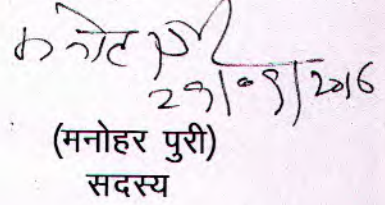 29/09/2016
(मनोहर पुरी)
सदस्य